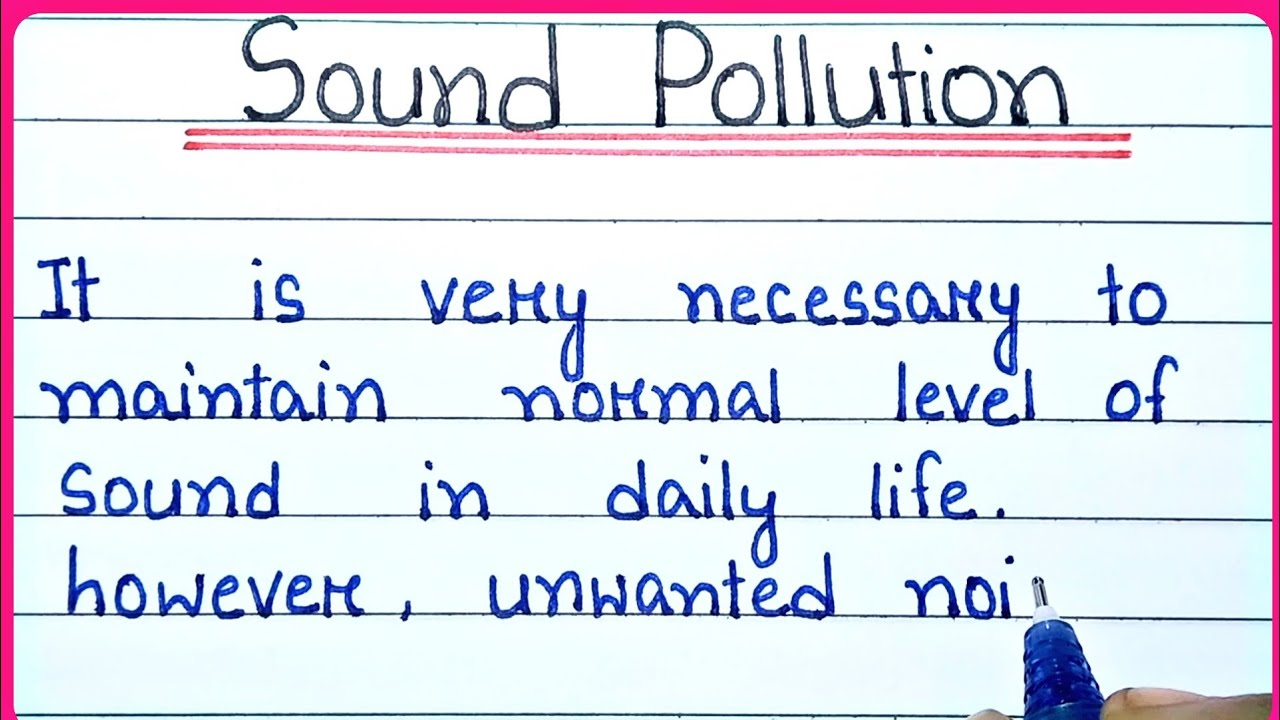 Sound Pollution
It is very necessary to
maintain normal level of
sound in daily life.
however, unwanted noi